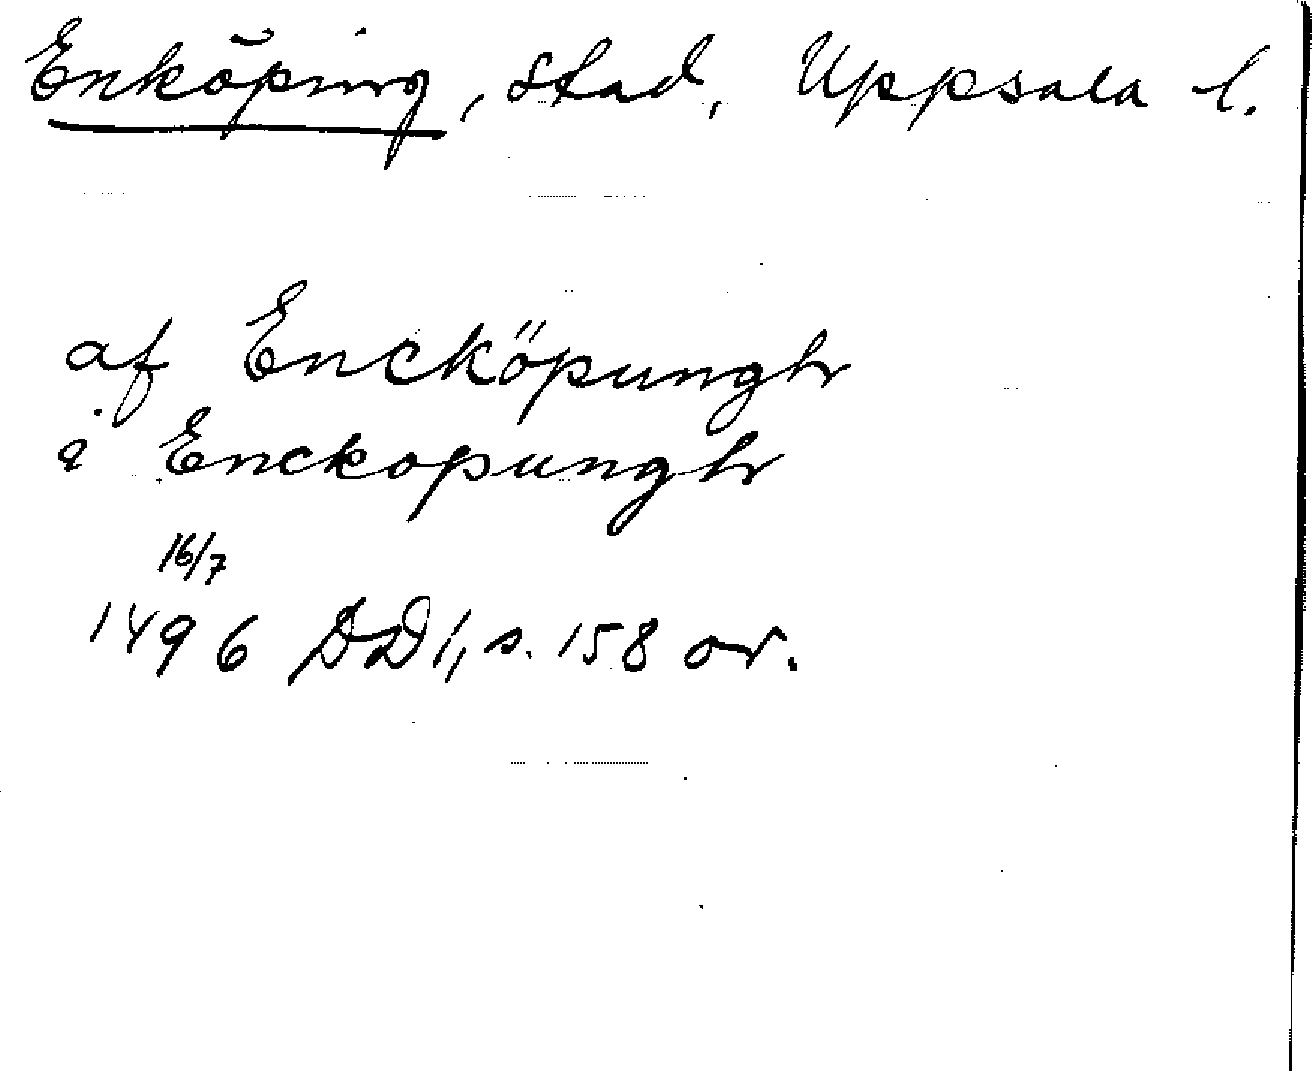 Enköping, stad, Uppsala l.
af Encköpungh
i Enckopungh
16/7
1496 DD 1, s. 158 or.